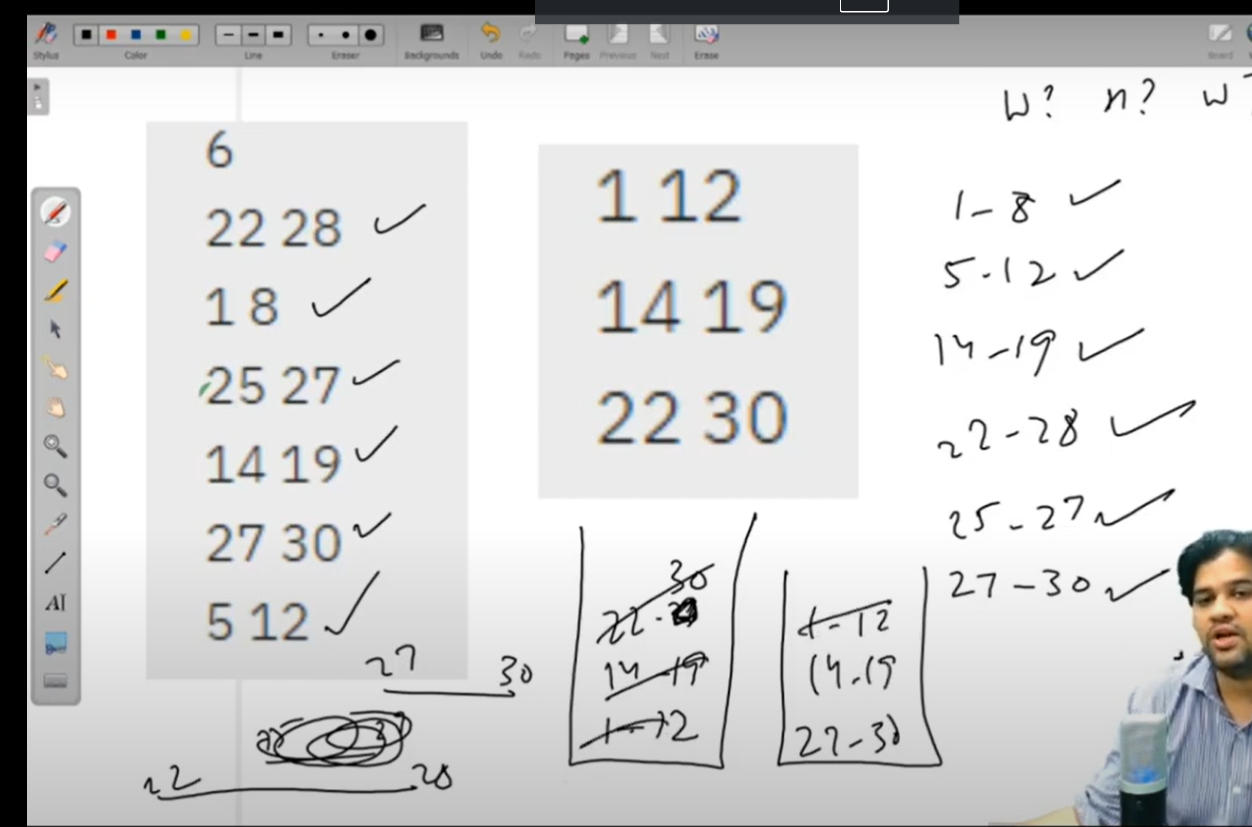 Stylus Color Line Eraser Backgrounds Undo Redo Pages Previous Next Erase Board
W? n? W
6
22 28
1 8
25 27
14 19
27 30
5 12
1 12
14 19
22 30
1-8
5-12
14-19
22-28
25-27
27-30
30
22-
14-19
1-12
1-12
14-19
22-30
27 30
22 28
AI